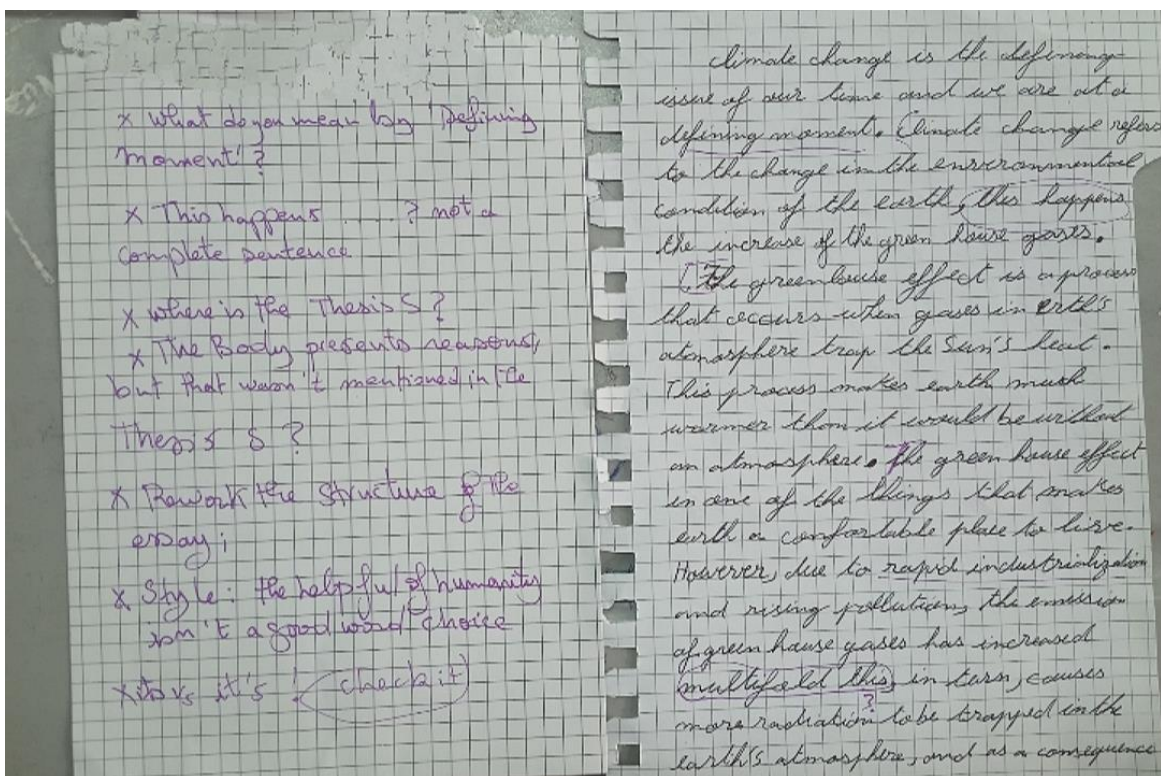 x What do you mean by 'Defining
moment'?
x This happens ....? not a
complete sentence
x where is the Thesis S?
x The Body presents reasons,
but that wasn't mentioned in the
Thesis S?
x Rework the structure of the
essay;
x Style: the helpful of humanity
isn't a good word choice
x its vs it's! check it
climate change is the defining
issue of our time and we are at a
defining moment. Climate change refers
to the change in the environmental
condition of the earth, this happens
the increase of the green house gases.
[The greenhouse effect is a process
that occurs when gases in erth's
atmosphere trap the Sun's heat.
This process makes earth much
warmer than it would be without
an atmosphere. The green house effect
in one of the things that makes
earth a comfortable place to live.
However, due to rapid industrialization
and rising pollution, the emission
of green house gases has increased
multifold this, in turn, causes
?
more radiation to be trapped in the
earth's atmosphere, and as a consequence